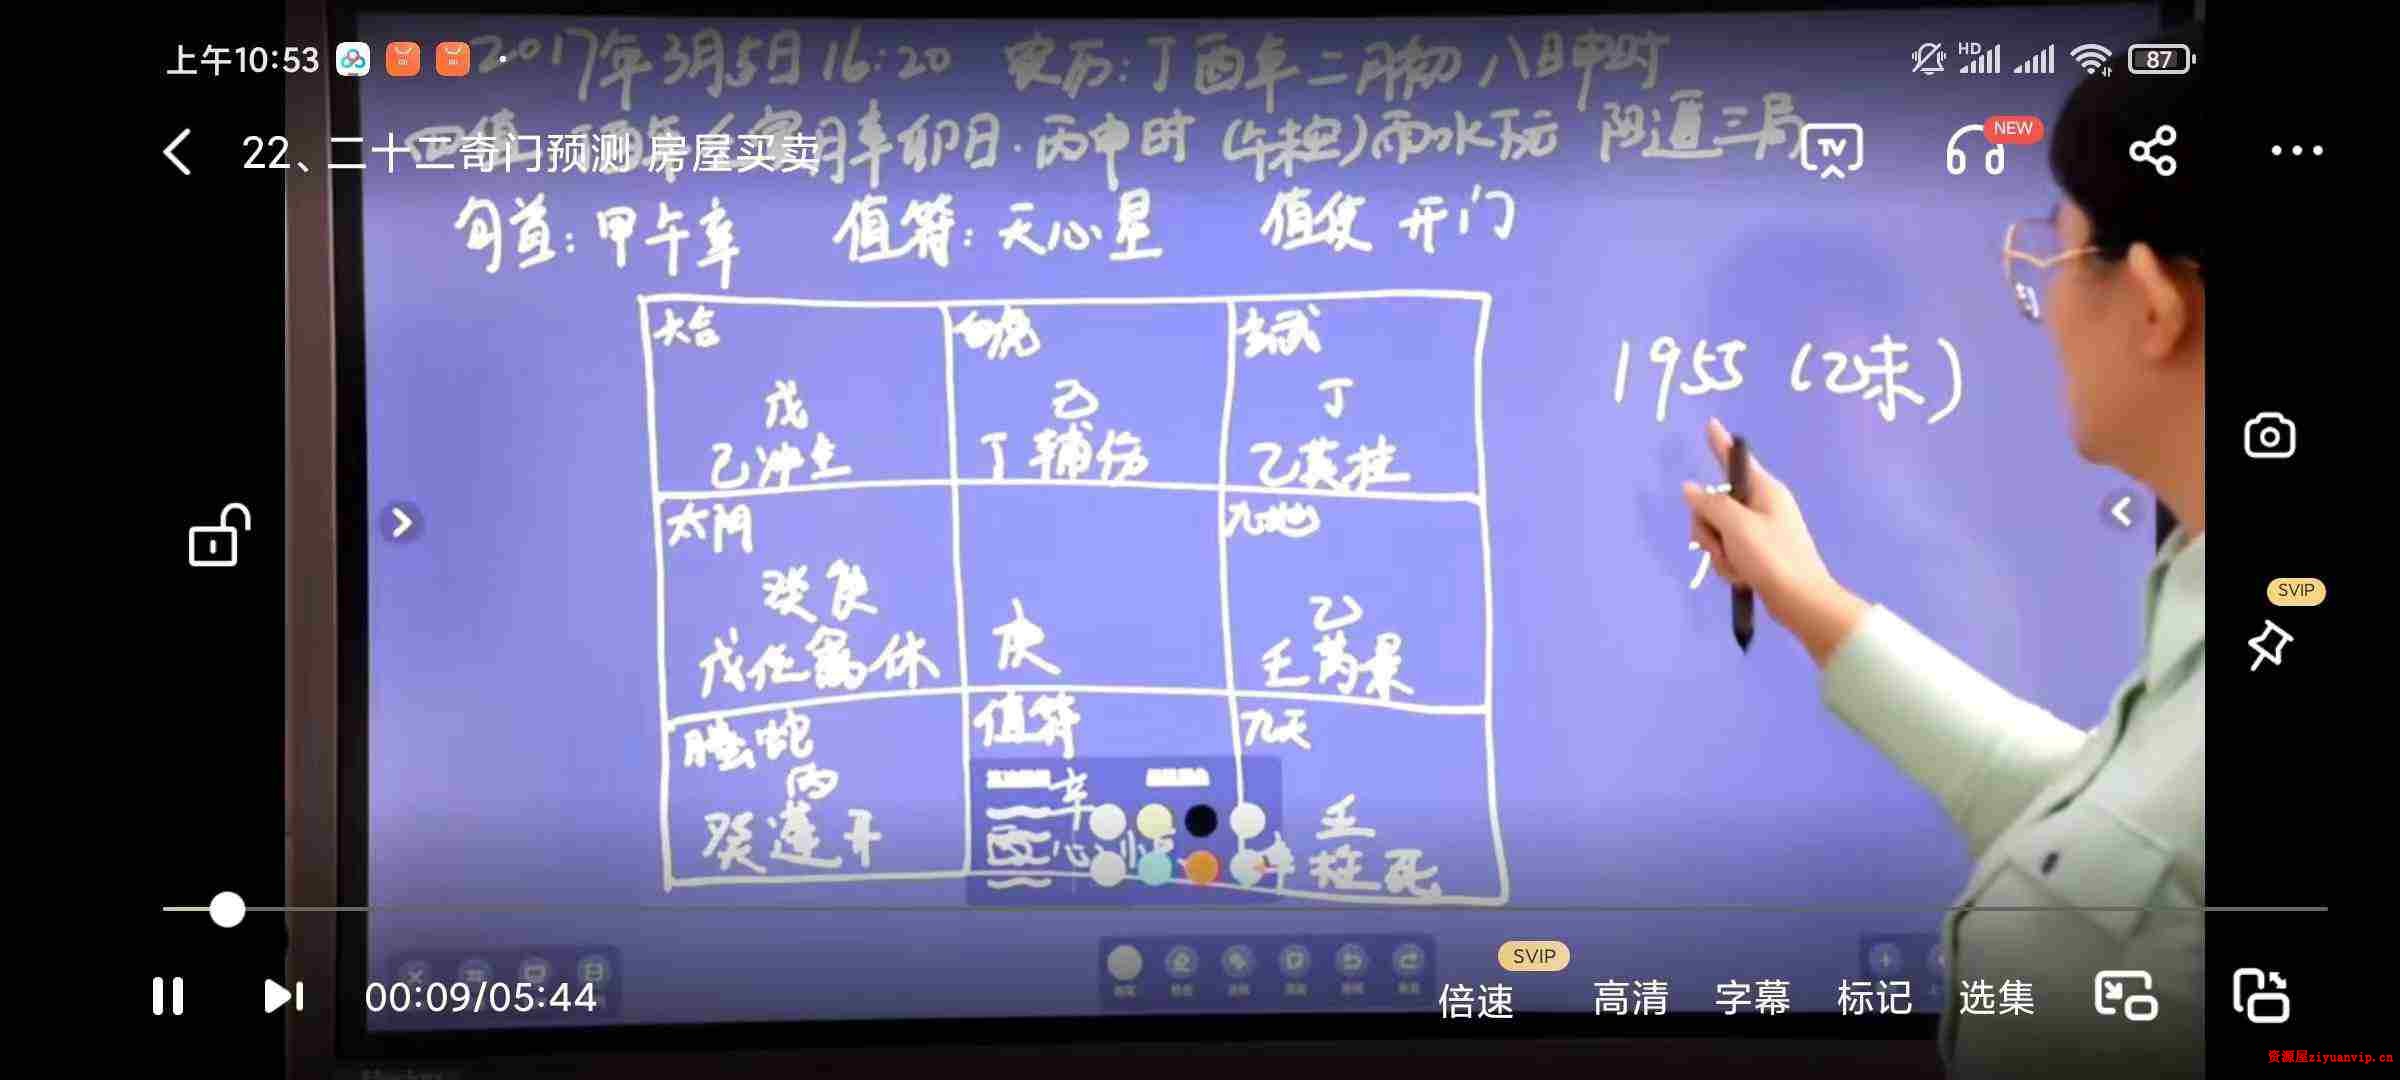 上午10:53
HD
87
2017年3月5日 16:20 农历:丁酉年二月初八日申时
22、二十二奇门预测 房屋买卖
辛卯日·丙申时 雨水下元 阴遁三局
TV
NEW
旬首:甲午辛 值符:天心星 值使 开门
六合 白虎 玄武
戊 己 丁
己冲生 丁辅伤 乙英杜
1955 (乙未)
太阴 九地
癸 庚 乙
戊任禽休 壬芮景
螣蛇 值符 九天
丙 辛 壬
癸蓬开 心 柱死
SVIP
00:09/05:44
SVIP
倍速 高清 字幕 标记 选集
资源屋ziyuanvip.cn